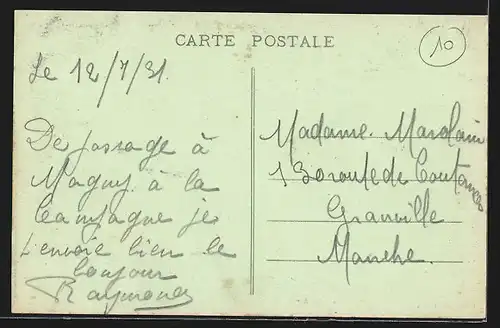 CARTE POSTALE
10
Le 12/7/31
De passage à
Magny à la
Campagne je
t'envoie bien le
bonjour
Raymonde
Madame
130 route de Coutances
Granville
Manche.